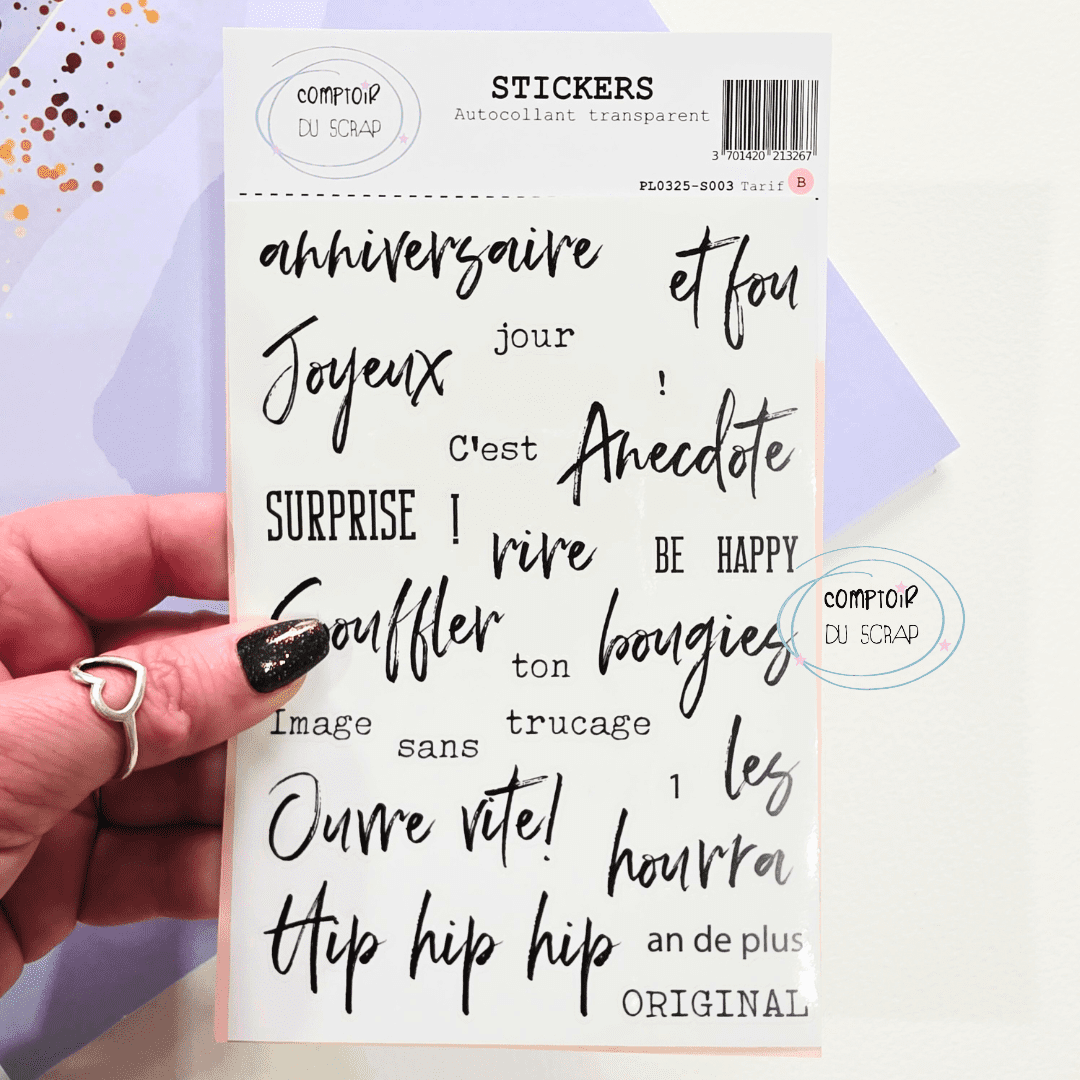 COMPTOIR
DU SCRAP
STICKERS
Autocollant transparent
3 701420 213267
PL0325-S003 Tarif B
anniversaire
et fou
jour
Joyeux
!
C'est
Anecdote
SURPRISE !
rire
BE HAPPY
Souffler
bougies
COMPTOIR
DU SCRAP
ton
Image
trucage
sans
les
1
Ouvre vite!
hourra
Hip hip hip
an de plus
ORIGINAL